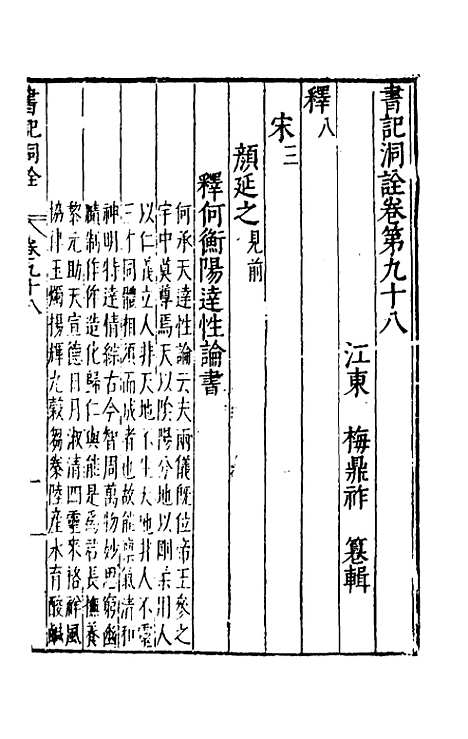 書記洞詮卷第九十八
江東 梅鼎祚 纂輯
釋八
宋三
顏延之見前
釋何衡陽達性論書
何承天達性論云夫兩儀既位帝王參之
宇中莫尊焉天以陰陽分地以剛柔用人
以仁義立人非天地不生天地非人不靈
三才同體相須而成者也故能稟氣清和
神明特達情綜古今智周萬物妙思窮幽
賾制作侔造化歸仁與能是爲君長撫養
黎元助天宣德日月淑清四靈來格祥風
協律玉燭揚輝九穀芻豢陸産水育酸鹹
書記洞詮 卷九十八 一